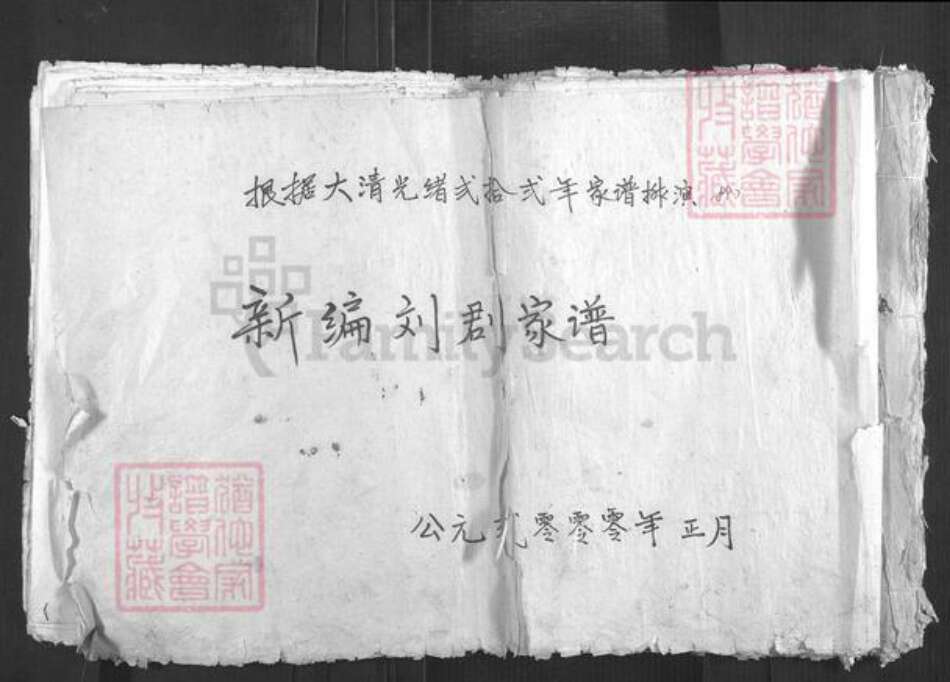 根据大清光绪弍拾弍年家谱排演
新编刘郡家谱
FamilySearch
公元弍零零零年正月
譜學會
家
特藏
譜學會
家
特藏